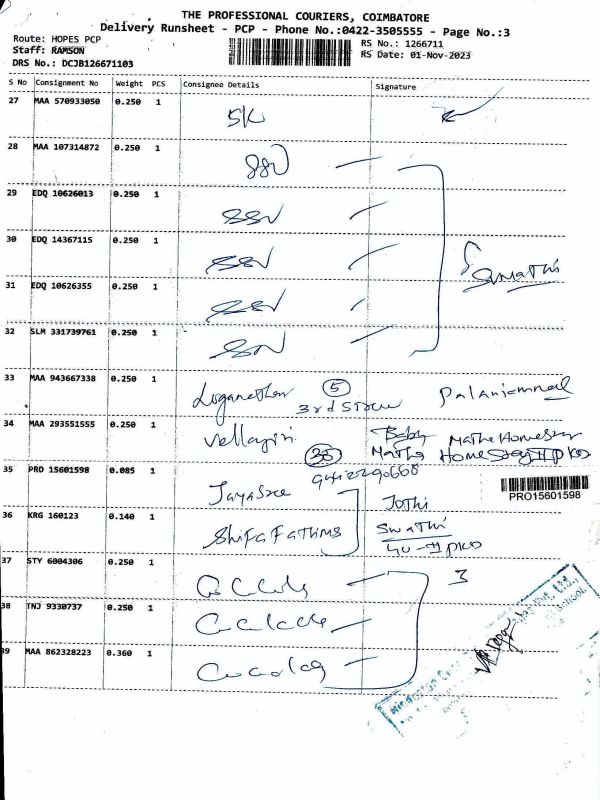 THE PROFESSIONAL COURIERS, COIMBATORE
Delivery Runsheet - PCP - Phone No.:0422-3505555 - Page No.:3
Route: HOPES PCP
RS No.: 1266711
Staff: RAMSON
RS Date: 01-Nov-2023
DRS No.: DCJB126671103
S No Consignment No Weight PCS Consignee Details Signature
27 MAA 570933050 0.250 1 SK
28 MAA 107314872 0.250 1 SSN
29 EDQ 10626013 0.250 1 SSN
30 EDQ 14367115 0.250 1 SSN
31 EDQ 10626355 0.250 1 SSN
Sumathi
32 SLM 331739761 0.250 1 SSN
33 MAA 943667338 0.250 1 Loganathan 5 Palaniammal
3rd Street
34 MAA 293551555 0.250 1 Vellagiri Baby Mathe Homestay
38 Mathe Homestay
35 PRO 15601598 0.085 1 Jayasree Jothi
PRO15601598
36 KRG 160123 0.140 1 Shifa Fathima Swathi
37 STY 6004306 0.250 1 3
38 TNJ 9330737 0.250 1
39 MAA 862328223 0.360 1